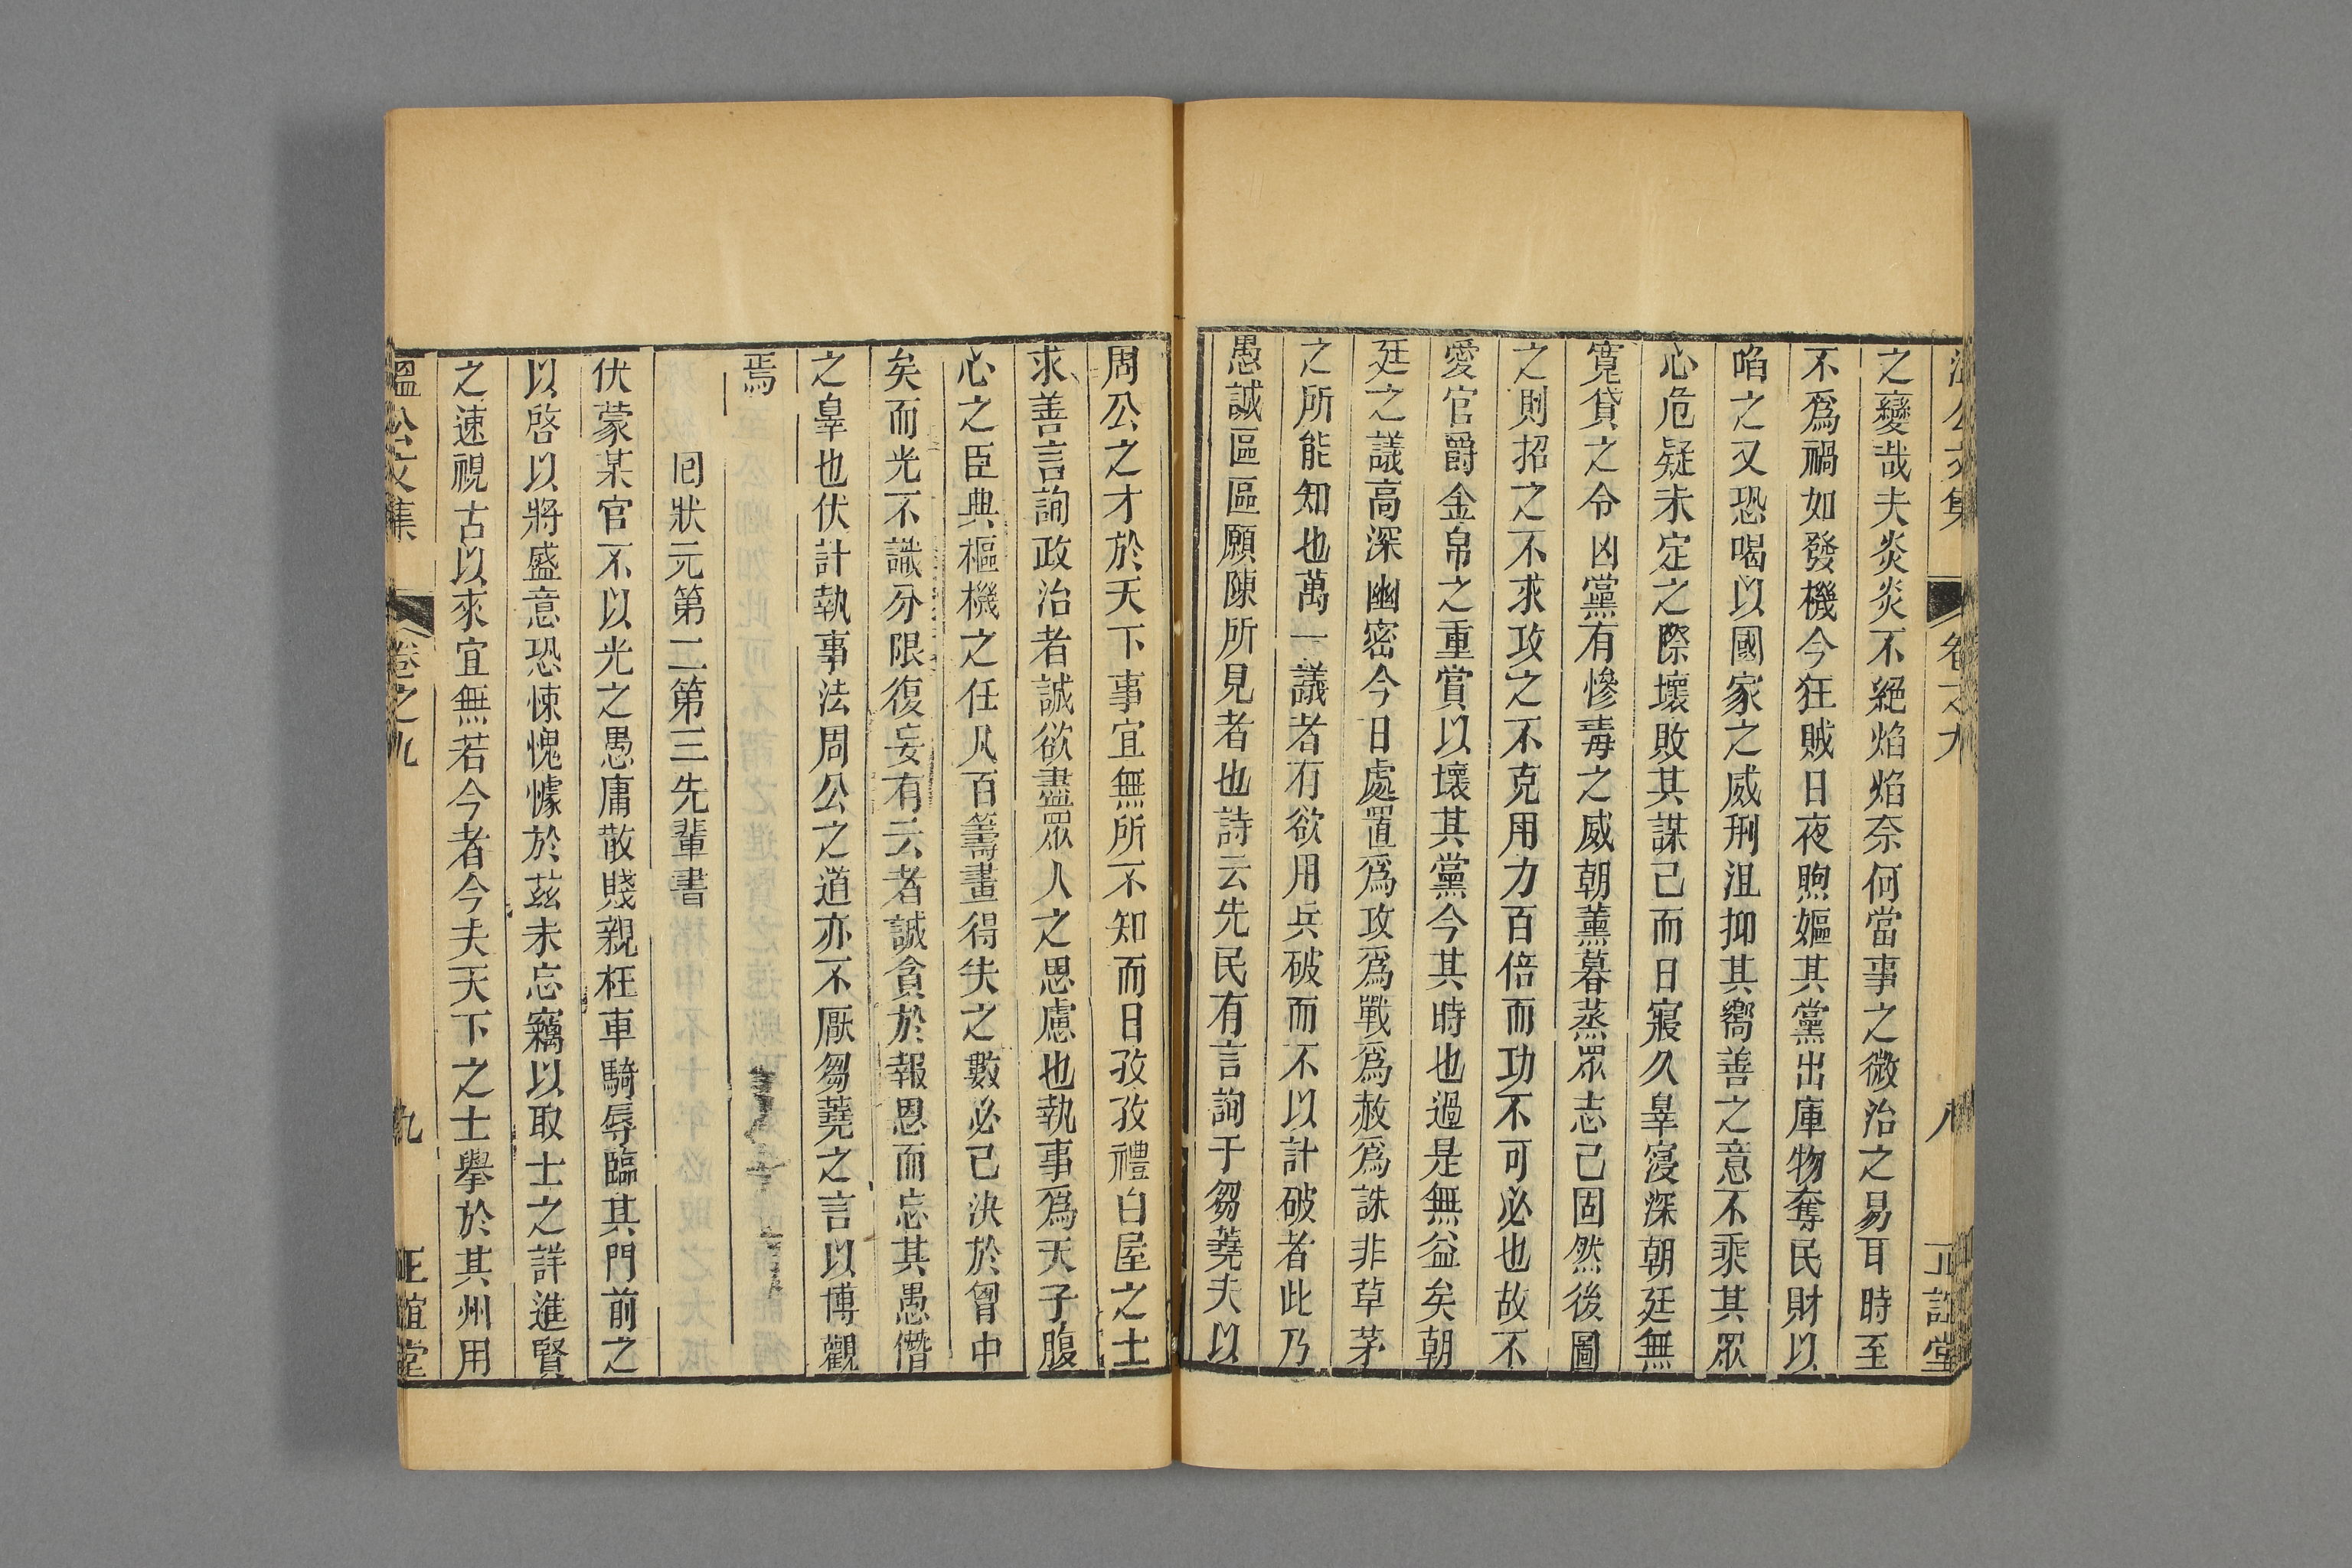 溫公文集 卷之九 八 正誼堂
之變哉夫炎炎不絕焰焰奈何當事之微治之易耳時至
不爲禍如發機今狂賊日夜煦嫗其黨出庫物奪民財以
啗之又恐喝以國家之威刑沮抑其嚮善之意不乘其眾
心危疑未定之際壞敗其謀己而日寢久辠寖深朝廷無
寬貸之令凶黨有慘毒之威朝薰暮蒸眾志己固然後圖
之則招之不求攻之不克用力百倍而功不可必也故不
愛官爵金帛之重賞以壞其黨今其時也過是無益矣朝
廷之議高深幽密今日處置爲攻爲戰爲赦爲誅非草茅
之所能知也萬一議者有欲用兵破而不以計破者此乃
愚誠區區願陳所見者也詩云先民有言詢于芻蕘夫以
周公之才於天下事宜無所不知而日孜孜禮白屋之士
求善言詢政治者誠欲盡眾人之思慮也執事爲天子腹
心之臣典樞機之任凡百籌畫得失之數必己決於胷中
矣而光不識分限復妄有云者誠貪於報恩而忘其愚僭
之辠也伏計執事法周公之道亦不厭芻蕘之言以博觀
焉
囘狀元第二第三先輩書
伏蒙某官不以光之愚庸散賤親枉車騎辱臨其門前之
以啓以將盛意恐悚愧懅於茲未忘竊以取士之詳進賢
之速視古以來宜無若今者今夫天下之士舉於其州用
溫公文集 卷之九 九 正誼堂